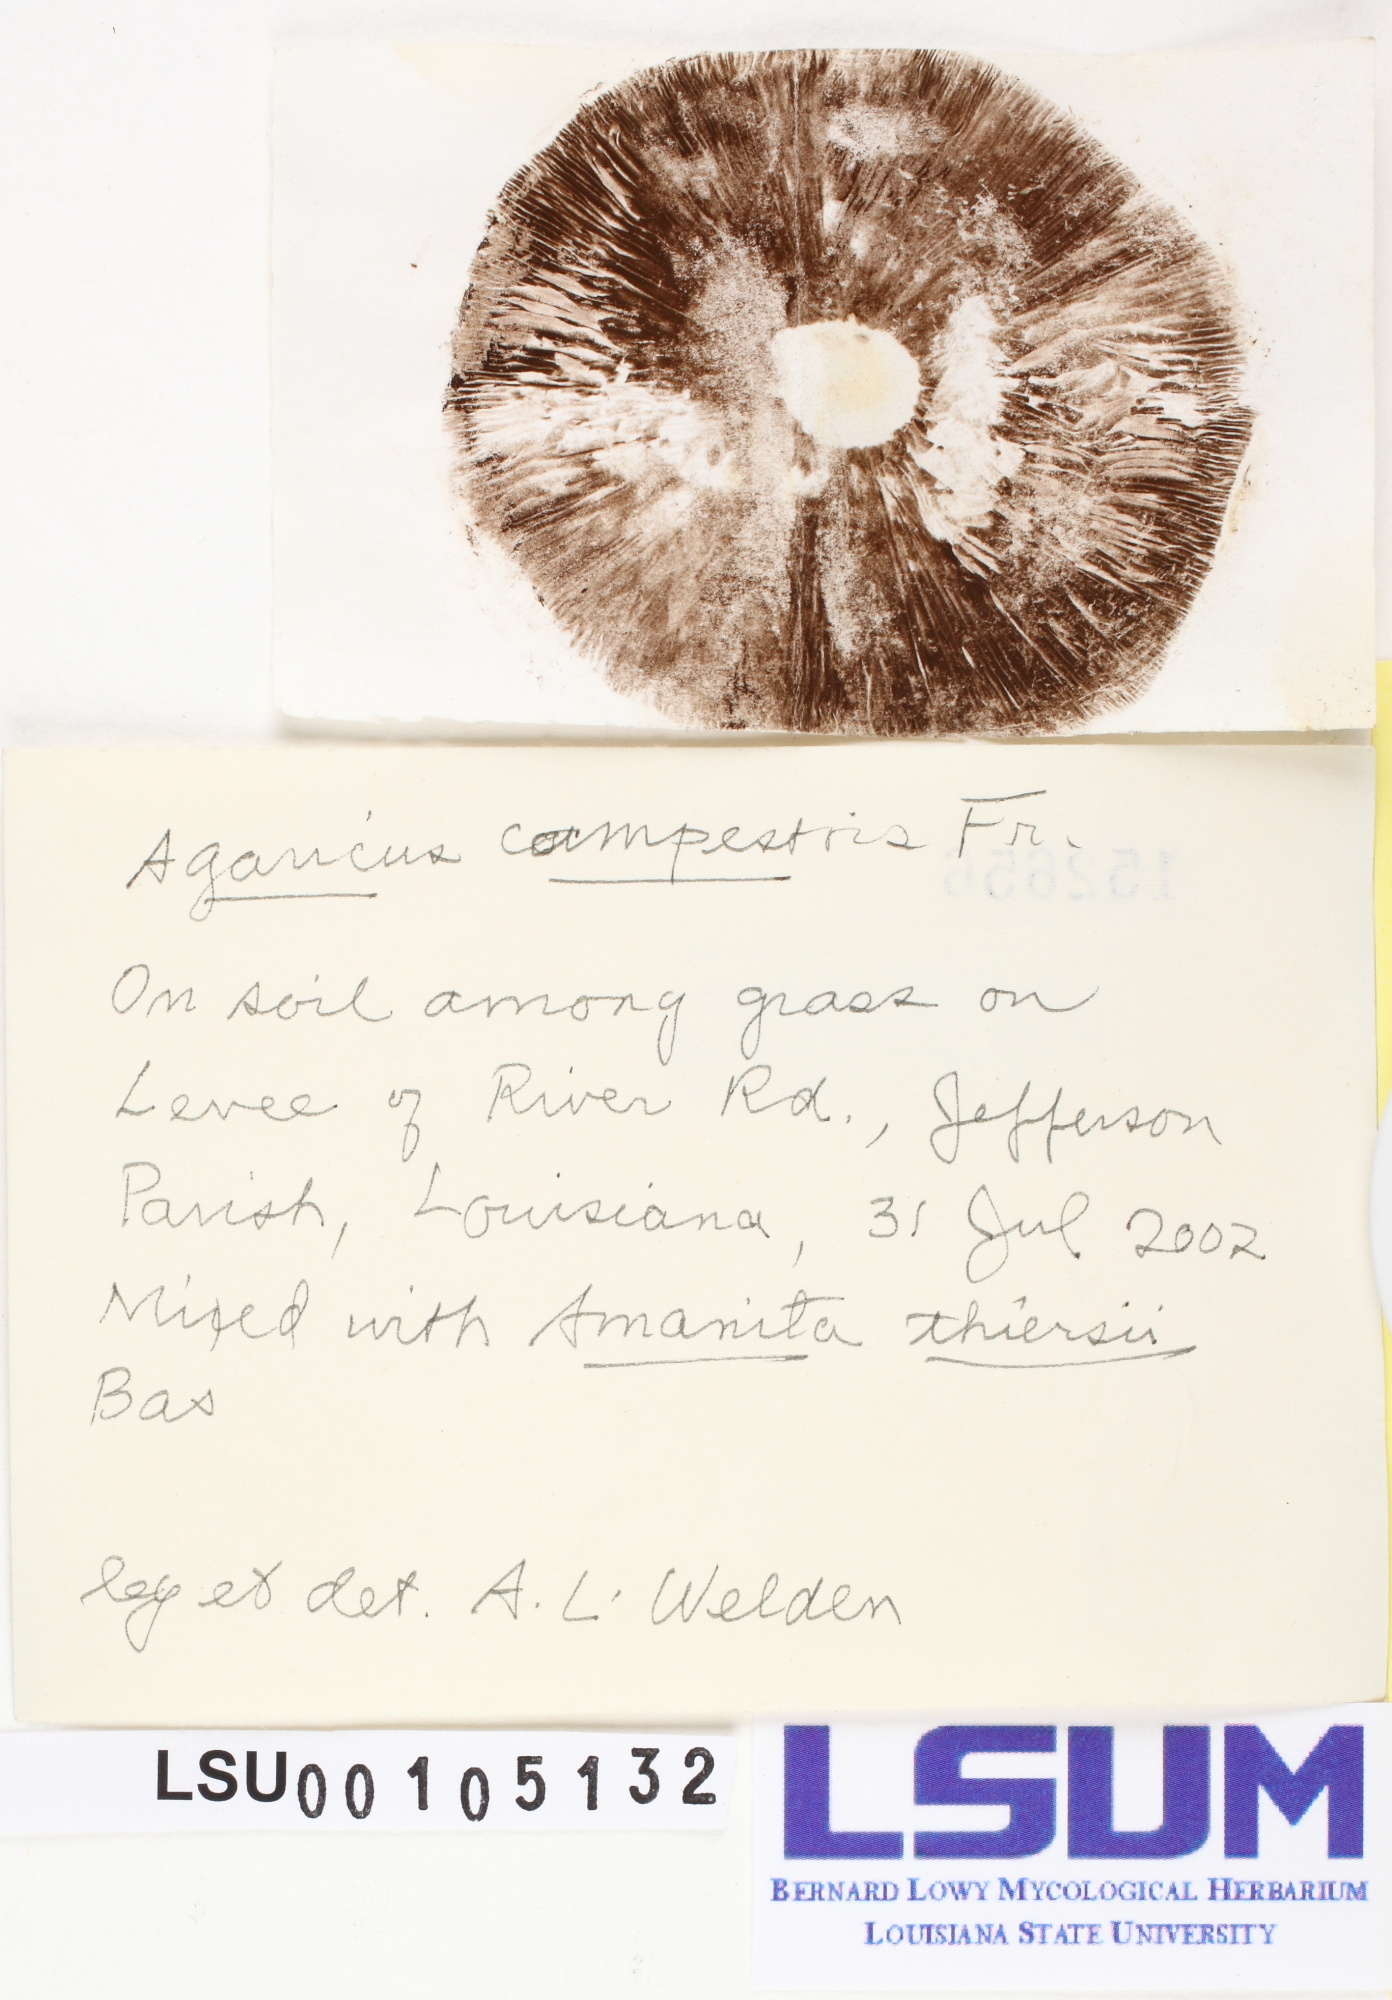 Agaricus campestris Fr.
152656
On soil among grass on
Levee of River Rd., Jefferson
Parish, Louisiana, 31 Jul 2002
Mixed with Amanita thiersii
Bas
leg et det. A. L. Welden
LSU00105132
LSUM
BERNARD LOWY MYCOLOGICAL HERBARIUM
LOUISIANA STATE UNIVERSITY